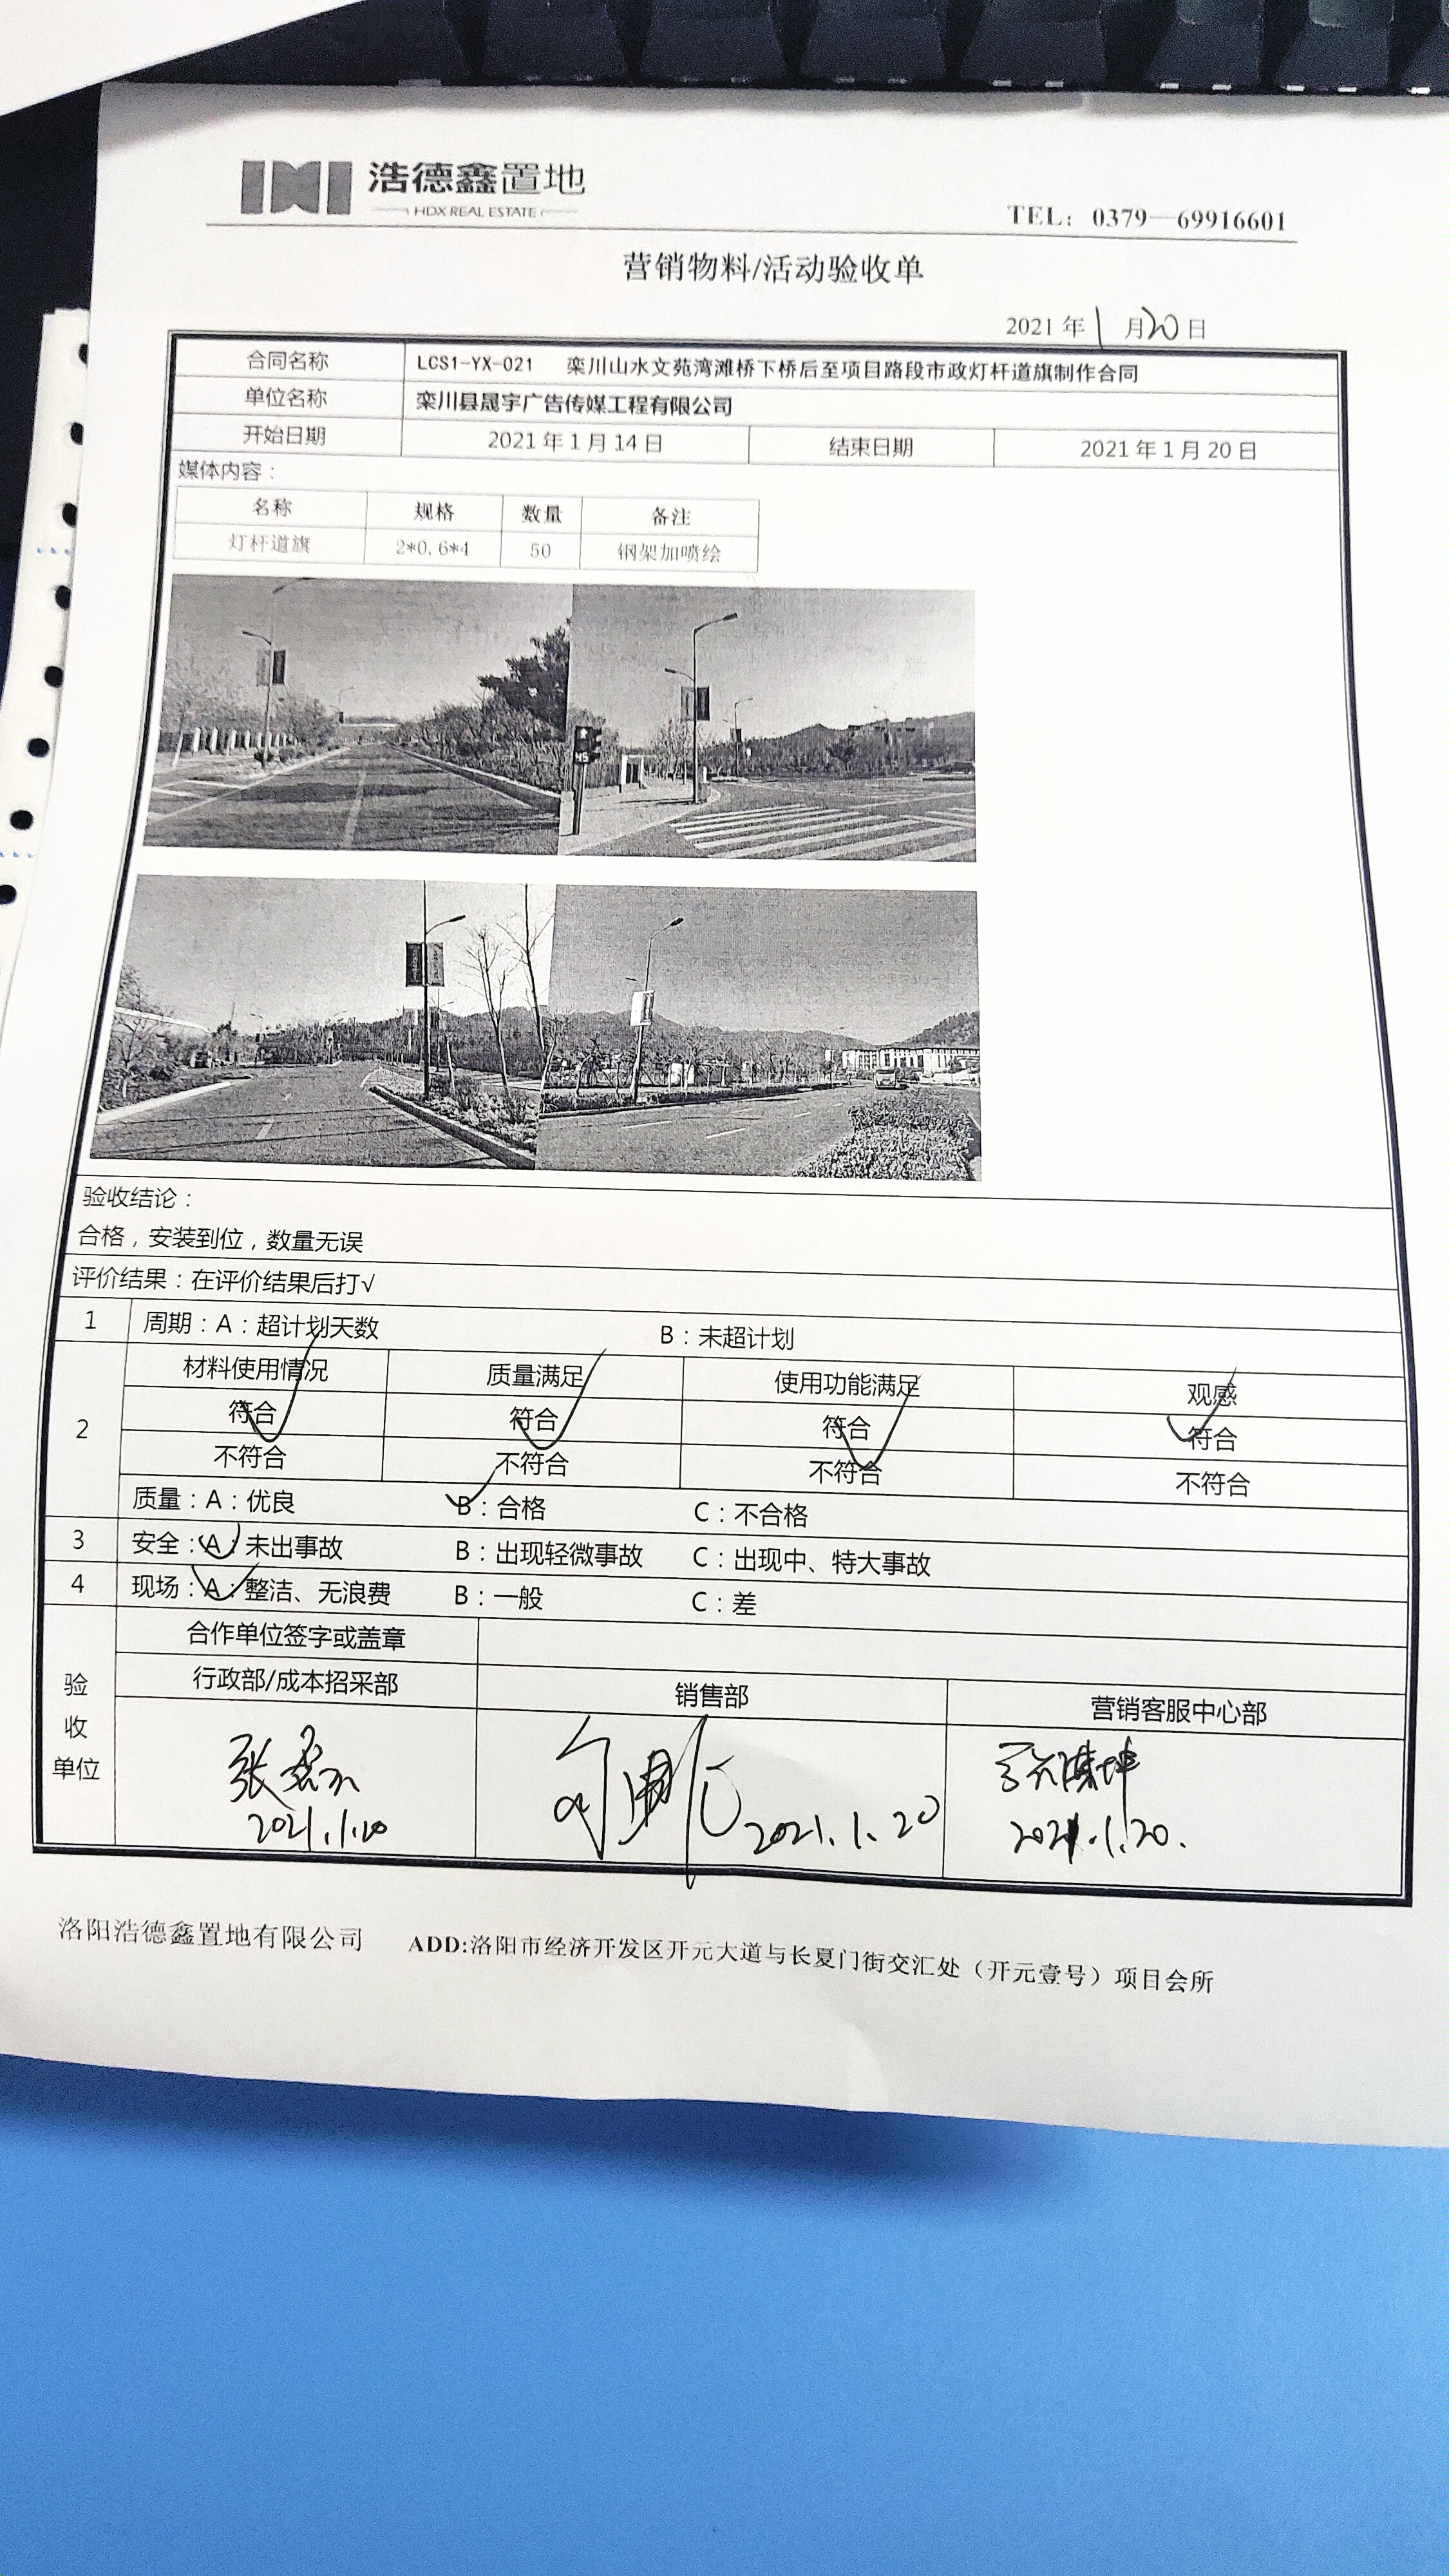 浩德鑫置地
HDX REAL ESTATE
TEL：0379—69916601
营销物料/活动验收单
2021 年 1 月 20 日
合同名称 LCS1-YX-021 栾川山水文苑湾滩桥下桥后至项目路段市政灯杆道旗制作合同
单位名称 栾川县晟宇广告传媒工程有限公司
开始日期 2021 年 1 月 14 日 结束日期 2021 年 1 月 20 日
媒体内容：
名称 规格 数量 备注
灯杆道旗 2*0.6*4 50 钢架加喷绘
45
验收结论：
合格，安装到位，数量无误
评价结果：在评价结果后打√
1 周期：A：超计划天数 B：未超计划
2 材料使用情况 质量满足 使用功能满足 观感
符合 符合 符合 符合
不符合 不符合 不符合 不符合
质量：A：优良 B：合格 C：不合格
3 安全：A：未出事故 B：出现轻微事故 C：出现中、特大事故
4 现场：A：整洁、无浪费 B：一般 C：差
验收单位 合作单位签字或盖章
行政部/成本招采部 销售部 营销客服中心部
张
2021.1.20 2021.1.20 2021.1.20.
洛阳浩德鑫置地有限公司 ADD:洛阳市经济开发区开元大道与长夏门街交汇处（开元壹号）项目会所